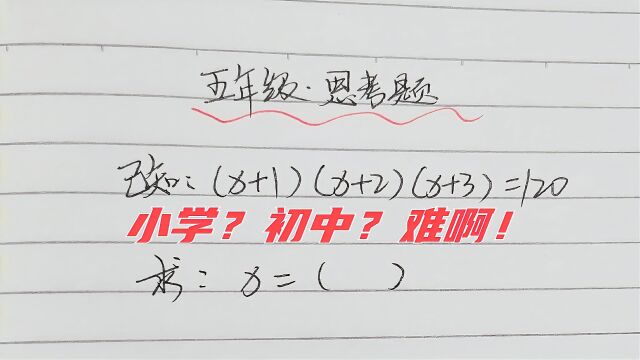 五年级·思考题
已知:(x+1)(x+2)(x+3)=120
小学?初中?难啊!
求:x=( )